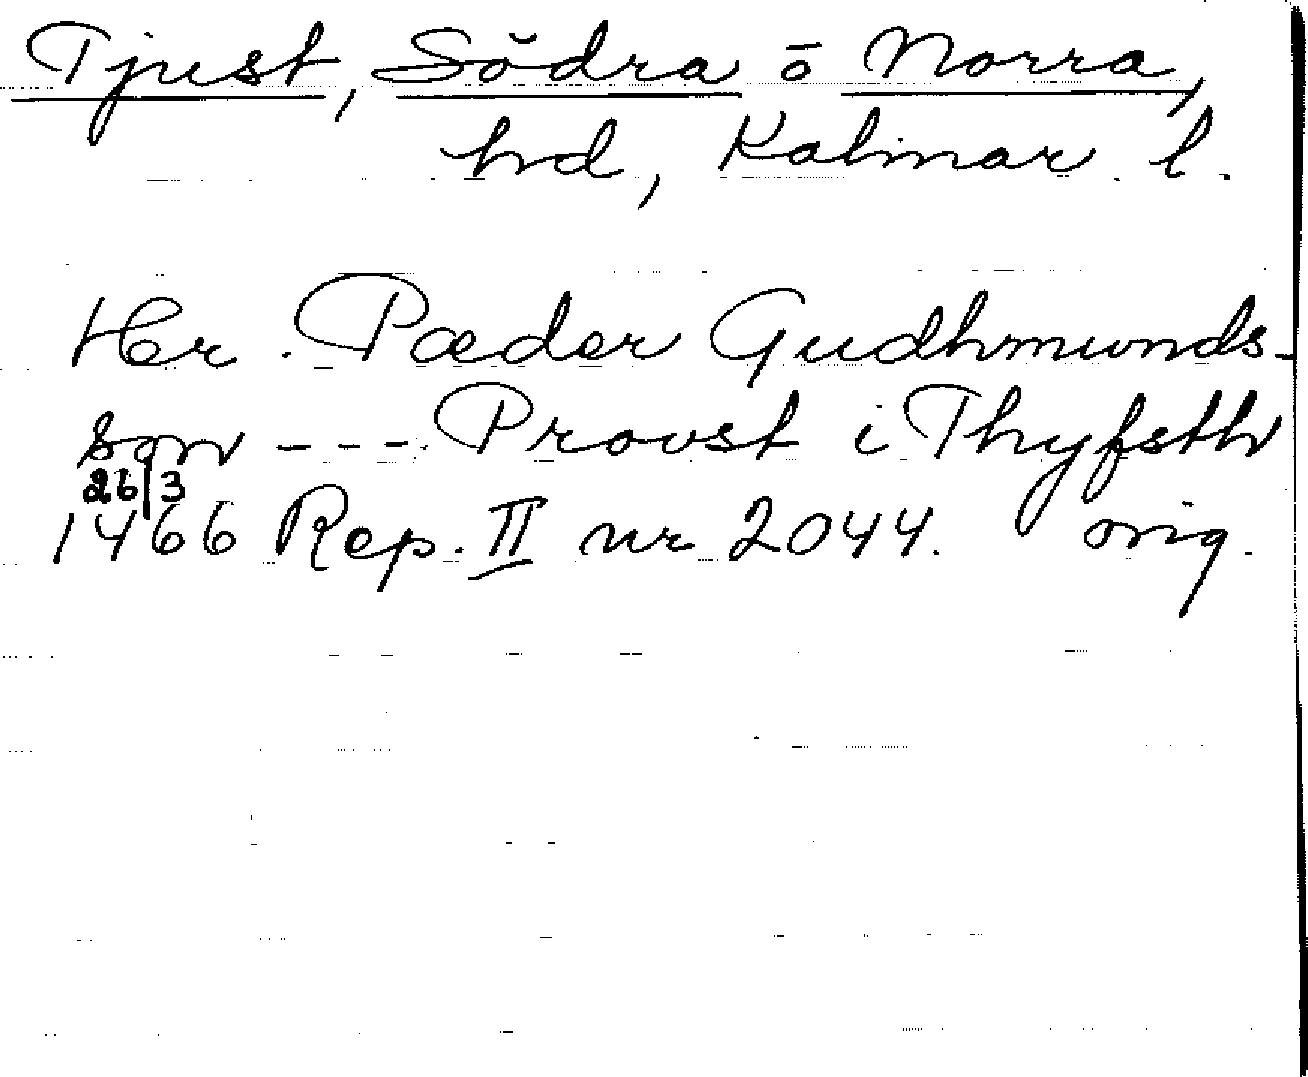 Tjust, Södra ō Norra,
hd, Kalmar l.
Her. Pæder Gudhmunds-
son --- Provst i Thyfsth
26/3
1466 Rep. II nr 2044. orig.